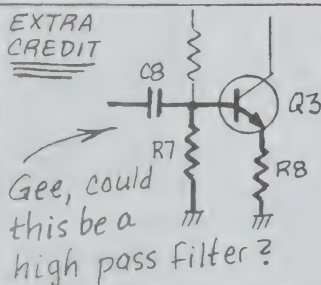 EXTRA
CREDIT
C8
Q3
R7
R8
Gee, could
this be a
high pass filter?